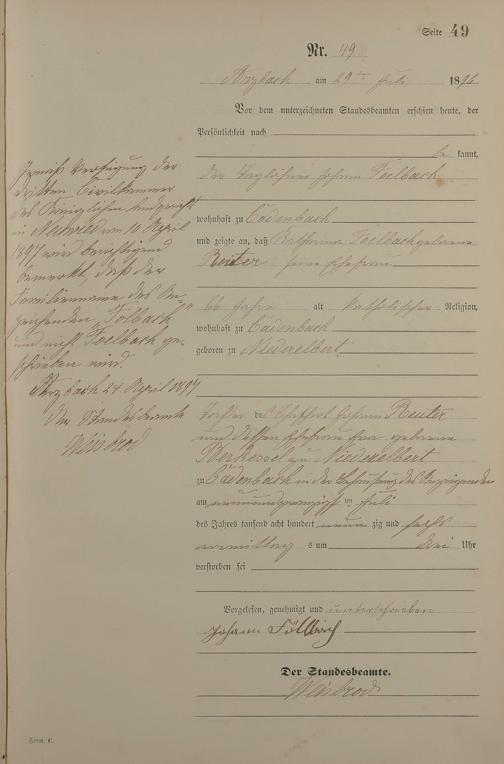 Seite 49
Nr. 49
Arzbach am 29ten Juli 1896
Vor dem unterzeichneten Standesbeamten erschien heute, der
Persönlichkeit nach
be kannt,
der Taglöhner Johann Foelbach
wohnhaft zu Cadenbach
und zeigte an, daß Katharina Foelbach geborene
Reuter seine Ehefrau
66 Jahre alt katholischer Religion,
wohnhaft zu Cadenbach
geboren zu Niederelbert
Tochter des Johann Reuter
und dessen Ehefrau Eva geborene
zu Niederelbert
zu Cadenbach in der Behausung des Anzeigenden
am neunundzwanzigsten Juli
des Jahres tausend acht hundert neunzig und sechs
vormittags um drei Uhr
verstorben sei
Vorgelesen, genehmigt und unterschrieben
Johann Föllbach
Der Standesbeamte.
Weisbrod
Form. C.
Gemäß Verfügung der
dritten Civilkammer
des Königlichen Landgerichts
in Neuwied vom 10 April
1897 wird berichtigend
bemerkt, daß der
Familienname des An-
zeigenden "Fölbach"
und nicht Foelbach ge-
schrieben wird.
Arzbach 24 April 1897
Der Standesbeamte
Weisbrod